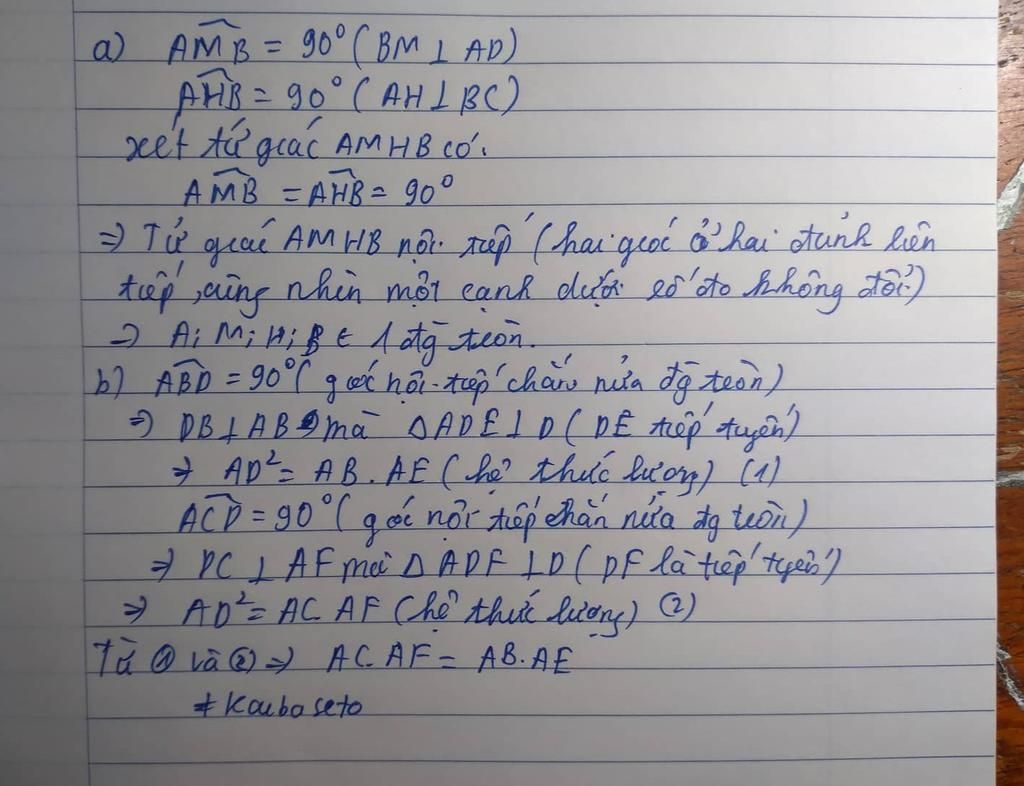 a) AMB = 90° (BM ⊥ AD)
AHB = 90° (AH ⊥ BC)
xét tứ giác AMHB có.
AMB = AHB = 90°
=> Tứ giác AMHB nội tiếp (hai góc ở hai đỉnh liên
tiếp, cùng nhìn một cạnh dưới số đo không đổi)
=> A; M; H; B ∈ 1 đg tròn.
b) ABD = 90° (góc nội tiếp chắn nửa đg tròn)
=> DB ⊥ AB mà Δ ADE ⊥ D (DE tiếp tuyến)
=> AD² = AB. AE (hệ thức lượng) (1)
ACD = 90° (góc nội tiếp chắn nửa đg tròn)
=> DC ⊥ AF mà Δ ADF ⊥ D (DF là tiếp tuyến)
=> AD² = AC. AF (hệ thức lượng) (2)
Từ (1) và (2) => AC. AF = AB. AE
# Kaubaseto